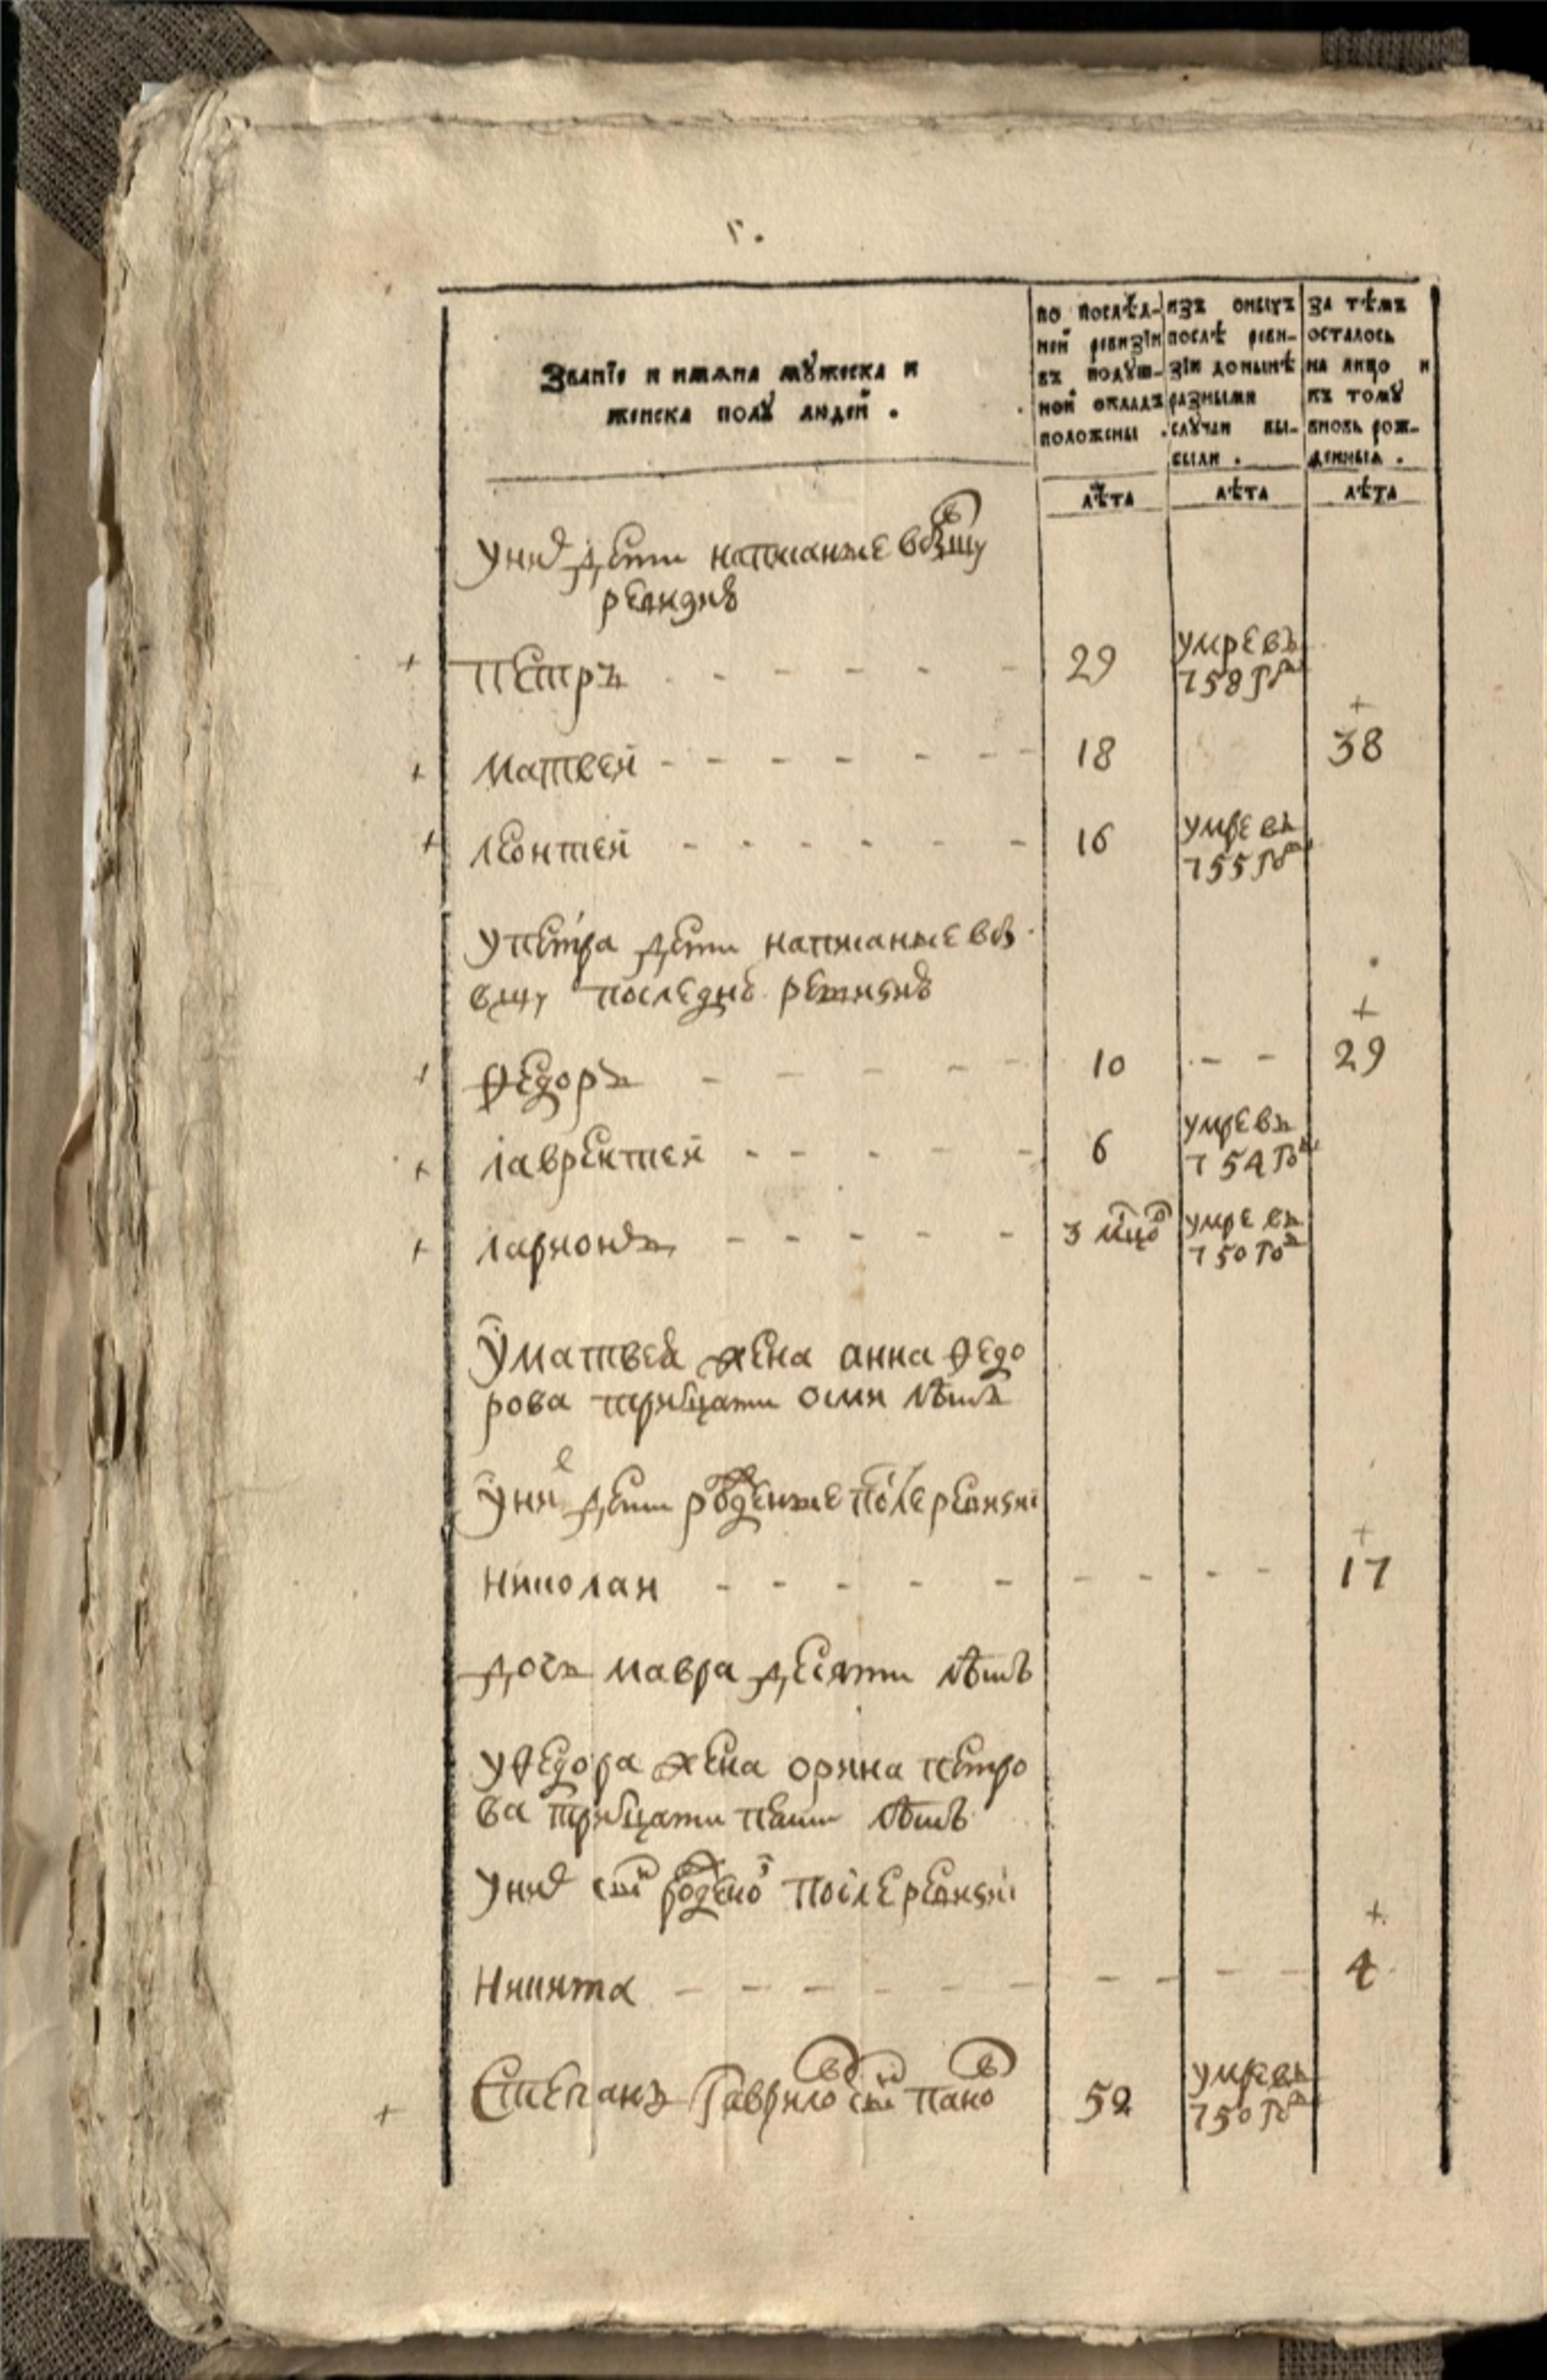 Званїе и имѧна мꙋжеска и
женска полꙋ людей .
по послѣд-
ней ревизїи
въ подꙋш-
ной окладъ
положены .
изъ оныхъ
послѣ реви-
зїи донынѣ
разными
слꙋчаи вы-
были .
за тѣмъ
осталось
на лицо и
къ томꙋ
вновь рож-
денныѧ .
лѣта лѣта лѣта
уних дети написанные в
ревизию
Петръ 29 умре въ
758 го д
+
Матвей 18 38
Леонтей 16 умре въ
755 го д
упетра дети написанные
последнюю ревизию
+
Ѳедоръ 10 29
Лаврентей 6 умре въ
754 го д
Ларионъ 3 мцо в умре въ
750 го д
уматвея жена анна ѳедо
рова тритцати осми лѣтъ
унихъ дети рожденные после ревизии
+
Николаи 17
дочь мавра десяти лѣтъ
уѳедора жена орина петро
ва тритцати пяти лѣтъ
уних сынъ рожденой после ревизии
+
Никита 4
Степанъ Гаврилов сынъ Панов 52 умре въ
750 го д